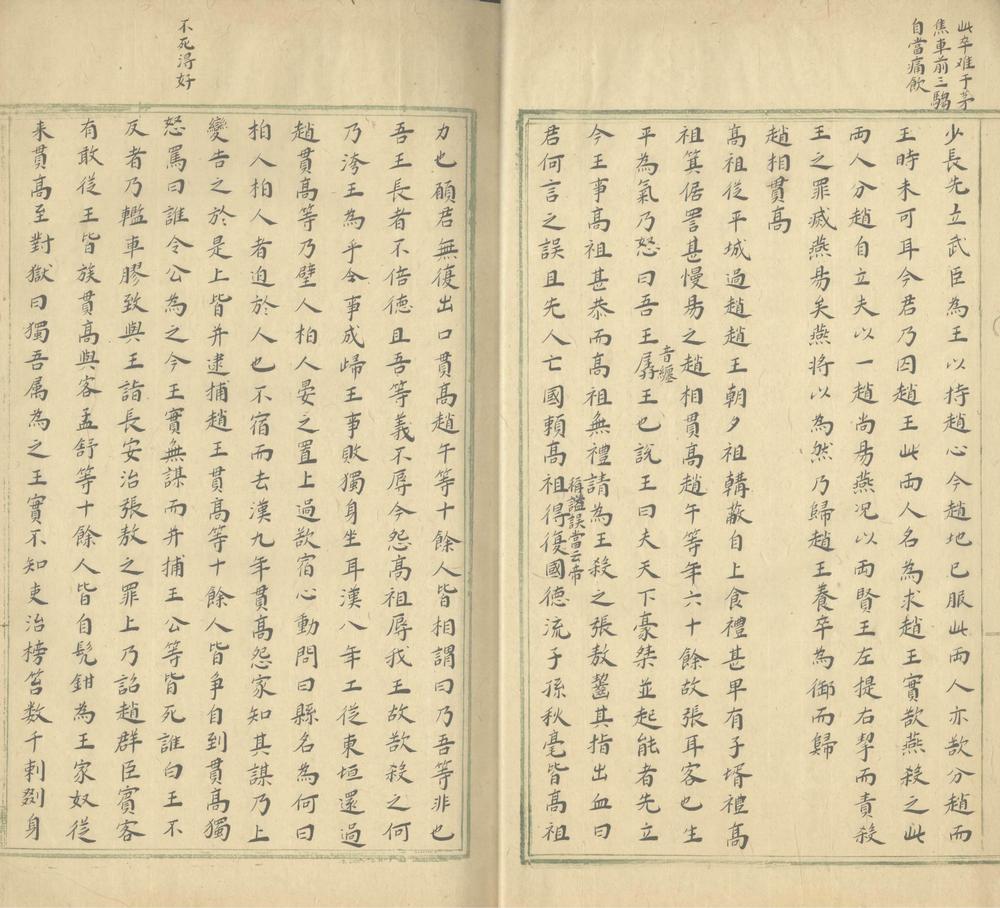 此卒难于茅
焦車前三騶
自當痛飲
少長先立武臣為王以持趙心今趙地已服此兩人亦欲分趙而
王時未可耳今君乃囚趙王此兩人名為求趙王實欲燕殺之此
両人分趙自立夫以一趙尚易燕况以両賢王左提右挈而責殺
王之罪滅燕易矣燕将以為然乃歸趙王養卒為御而歸
趙相貫高
高祖從平城過趙趙王朝夕祖韝蔽自上食禮甚卑有子壻禮高
祖箕倨詈甚慢易之趙相貫高趙午等年六十餘故張耳客也生
平為氣乃怒曰吾王孱王也說王曰夫天下豪桀並起能者先立
音纏
今王事高祖甚恭而高祖無禮請為王殺之張敖齧其指出血曰
君何言之誤且先人亡國頼高祖得復國德流子孫秋毫皆高祖
稱謚誤當云帝
不死得好
力也願君無復出口貫高趙午等十餘人皆相謂曰乃吾等非也
吾王長者不倍德且吾等義不辱今怨高祖辱我王故欲殺之何
乃洿王為乎令事成歸王事敗獨身坐耳漢八年上從東垣還過
趙貫高等乃壁人柏人晏之置上過欲宿心動問曰縣名為何曰
柏人柏人者迫於人也不宿而去漢九年貫高怨家知其謀乃上
變告之於是上皆并逮捕趙王貫高等十餘人皆争自刭貫高獨
怒罵曰誰令公為之今王實無謀而并捕王公等皆死誰白王不
反者乃轞車膠致與王詣長安治張敖之罪上乃詔趙群臣賓客
有敢從王皆族貫高與客孟舒等十餘人皆自髡鉗為王家奴從
来貫高至對獄曰獨吾属為之王實不知吏治榜笞数千刺剟身